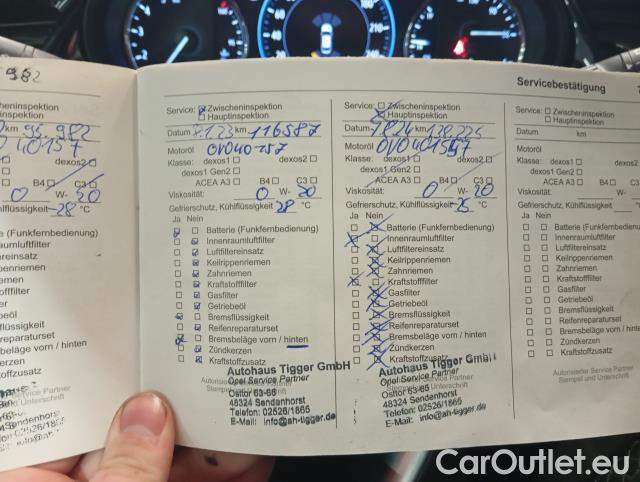 982
Servicebestätigung
cheninspektion
inspektion
km 95.982
040157
dexos2
B4 C3
0 W- 20
hlflüssigkeit -28 °C
e (Funkfernbedienung)
aumluftfilter
ltereinsatz
ppenriemen
emen
offfilter
er
eöl
lüssigkeit
eparaturset
beläge vorn / hinten
erzen
offzusatz
Service: Zwischeninspektion
Hauptinspektion
Datum km 116587
Motoröl OV040-157
Klasse: dexos1 dexos2
dexos1 Gen2
ACEA A3 B4 C3
Viskosität: 0 W- 20
Gefrierschutz, Kühlflüssigkeit 28 °C
Ja Nein
Batterie (Funkfernbedienung)
Innenraumluftfilter
Luftfiltereinsatz
Keilrippenriemen
Zahnriemen
Kraftstofffilter
Gasfilter
Getriebeöl
Bremsflüssigkeit
Reifenreparaturset
Bremsbeläge vorn / hinten
Zündkerzen
Kraftstoffzusatz
Autohaus Tigger GmbH
Opel Service Partner
Osttor 63-65
48324 Sendenhorst
Telefon: 02526/1865
E-Mail: info@ah-tigger.de
Service: Zwischeninspektion
Hauptinspektion
Datum km
Motoröl
Klasse: dexos1 dexos2
dexos1 Gen2
ACEA A3 B4 C3
Viskosität: 0 W- 20
Gefrierschutz, Kühlflüssigkeit -25 °C
Ja Nein
Batterie (Funkfernbedienung)
Innenraumluftfilter
Luftfiltereinsatz
Keilrippenriemen
Zahnriemen
Kraftstofffilter
Gasfilter
Getriebeöl
Bremsflüssigkeit
Reifenreparaturset
Bremsbeläge vorn / hinten
Zündkerzen
Kraftstoffzusatz
Autohaus Tigger GmbH
Opel Service Partner
Osttor 63-65
48324 Sendenhorst
Telefon: 02526/1865
E-Mail: info@ah-tigger.de
Service: Zwischeninspektion
Hauptinspektion
Datum km
Motoröl
Klasse: dexos1 dexos2
dexos1 Gen2
ACEA A3 B4 C3
Viskosität: W-
Gefrierschutz, Kühlflüssigkeit °C
Ja Nein
Batterie (Funkfernbedienung)
Innenraumluftfilter
Luftfiltereinsatz
Keilrippenriemen
Zahnriemen
Kraftstofffilter
Gasfilter
Getriebeöl
Bremsflüssigkeit
Reifenreparaturset
Bremsbeläge vorn / hinten
Zündkerzen
Kraftstoffzusatz
Autorisierter Service Partner
Stempel und Unterschrift
CarOutlet.eu